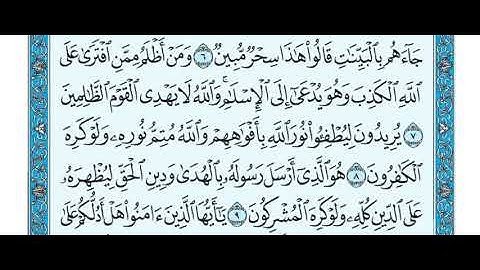 جَآءَهُم بِٱلْبَيِّنَٰتِ قَالُوا۟ هَٰذَا سِحْرٌ مُّبِينٌ ٦ وَمَنْ أَظْلَمُ مِمَّنِ ٱفْتَرَىٰ عَلَى
ٱللَّهِ ٱلْكَذِبَ وَهُوَ يُدْعَىٰٓ إِلَى ٱلْإِسْلَٰمِ ۚ وَٱللَّهُ لَا يَهْدِى ٱلْقَوْمَ ٱلظَّٰلِمِينَ
٧ يُرِيدُونَ لِيُطْفِـُٔوا۟ نُورَ ٱللَّهِ بِأَفْوَٰهِهِمْ وَٱللَّهُ مُتِمُّ نُورِهِۦ وَلَوْ كَرِهَ
ٱلْكَٰفِرُونَ ٨ هُوَ ٱلَّذِىٓ أَرْسَلَ رَسُولَهُۥ بِٱلْهُدَىٰ وَدِينِ ٱلْحَقِّ لِيُظْهِرَهُۥ
عَلَى ٱلدِّينِ كُلِّهِۦ وَلَوْ كَرِهَ ٱلْمُشْرِكُونَ ٩ يَٰٓأَيُّهَا ٱلَّذِينَ ءَامَنُوا۟ هَلْ أَدُلُّكُمْ عَلَىٰ